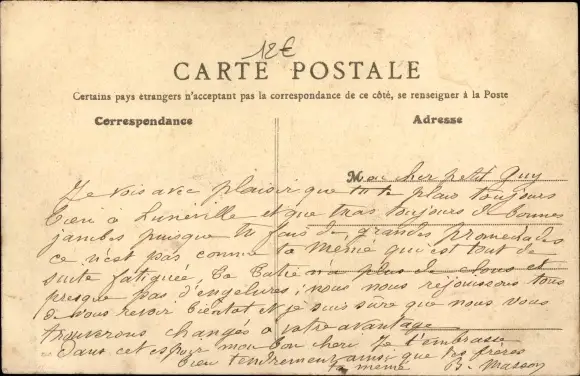 12€
CARTE POSTALE
Certains pays étrangers n'acceptent pas la correspondance de ce côté, se renseigner à la Poste
Correspondance
Adresse
Mon cher petit Guy
Je vois avec plaisir que tu te plais toujours
bien à Lunéville et que tu as toujours de bonnes
jambes puisque tu fais de grandes promenades
ce n'est pas comme ta Mémé qui est tout de
suite fatiguée Ta Tatie n'a plus de clous et
presque pas d'engelures; nous nous réjouissons tous
de vous revoir bientot et je suis sûre que nous vous
trouverons changés à votre avantage
Dans cet espoir mon bon cheri Je t'embrasse
bien tendrement ainsi que tes frères
ta mémé B. Masson